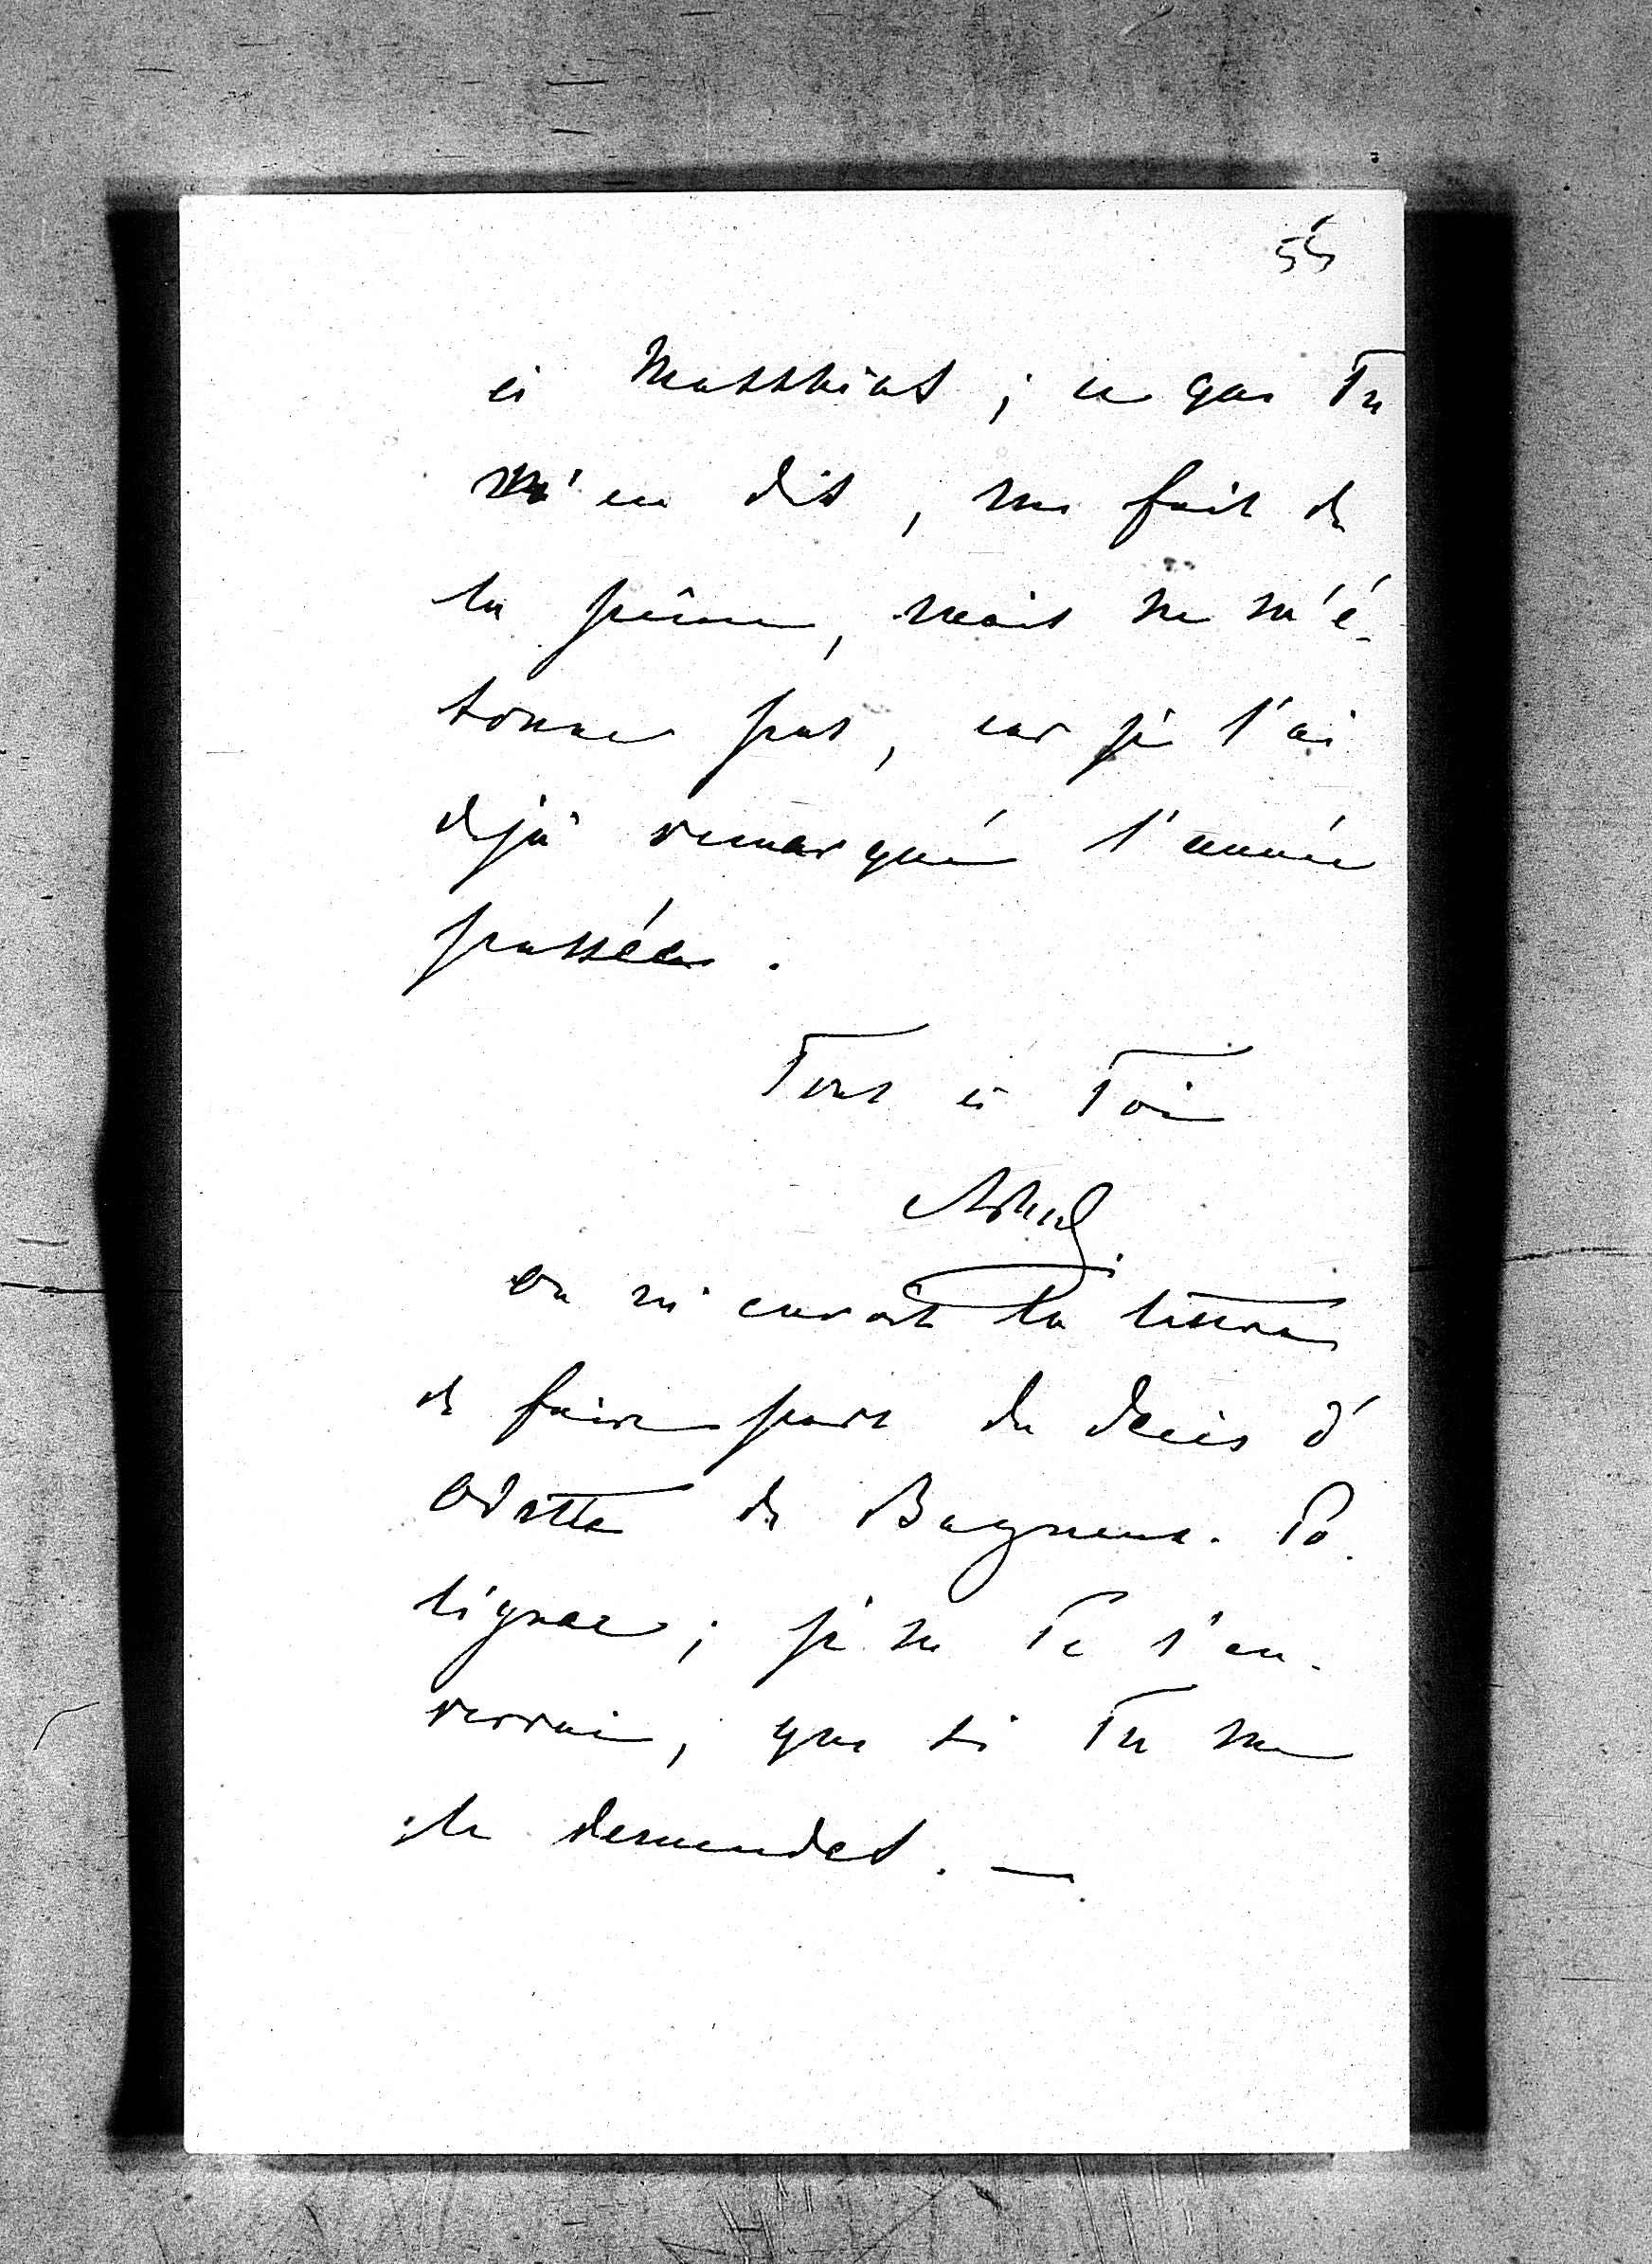 55
à Matthias ; ce que Tu
m'en dis , me fait de
la peine, mais ne m'é-
tonne pas , car je l'ai
déjà remarqué l'année
passée .
Tout à Toi
on m'envoit la lettre
de faire part du décès d'
Odette de Bagneux - Po-
lignac ; je ne Te l'en-
verrai, que si Tu me
la demandes . —